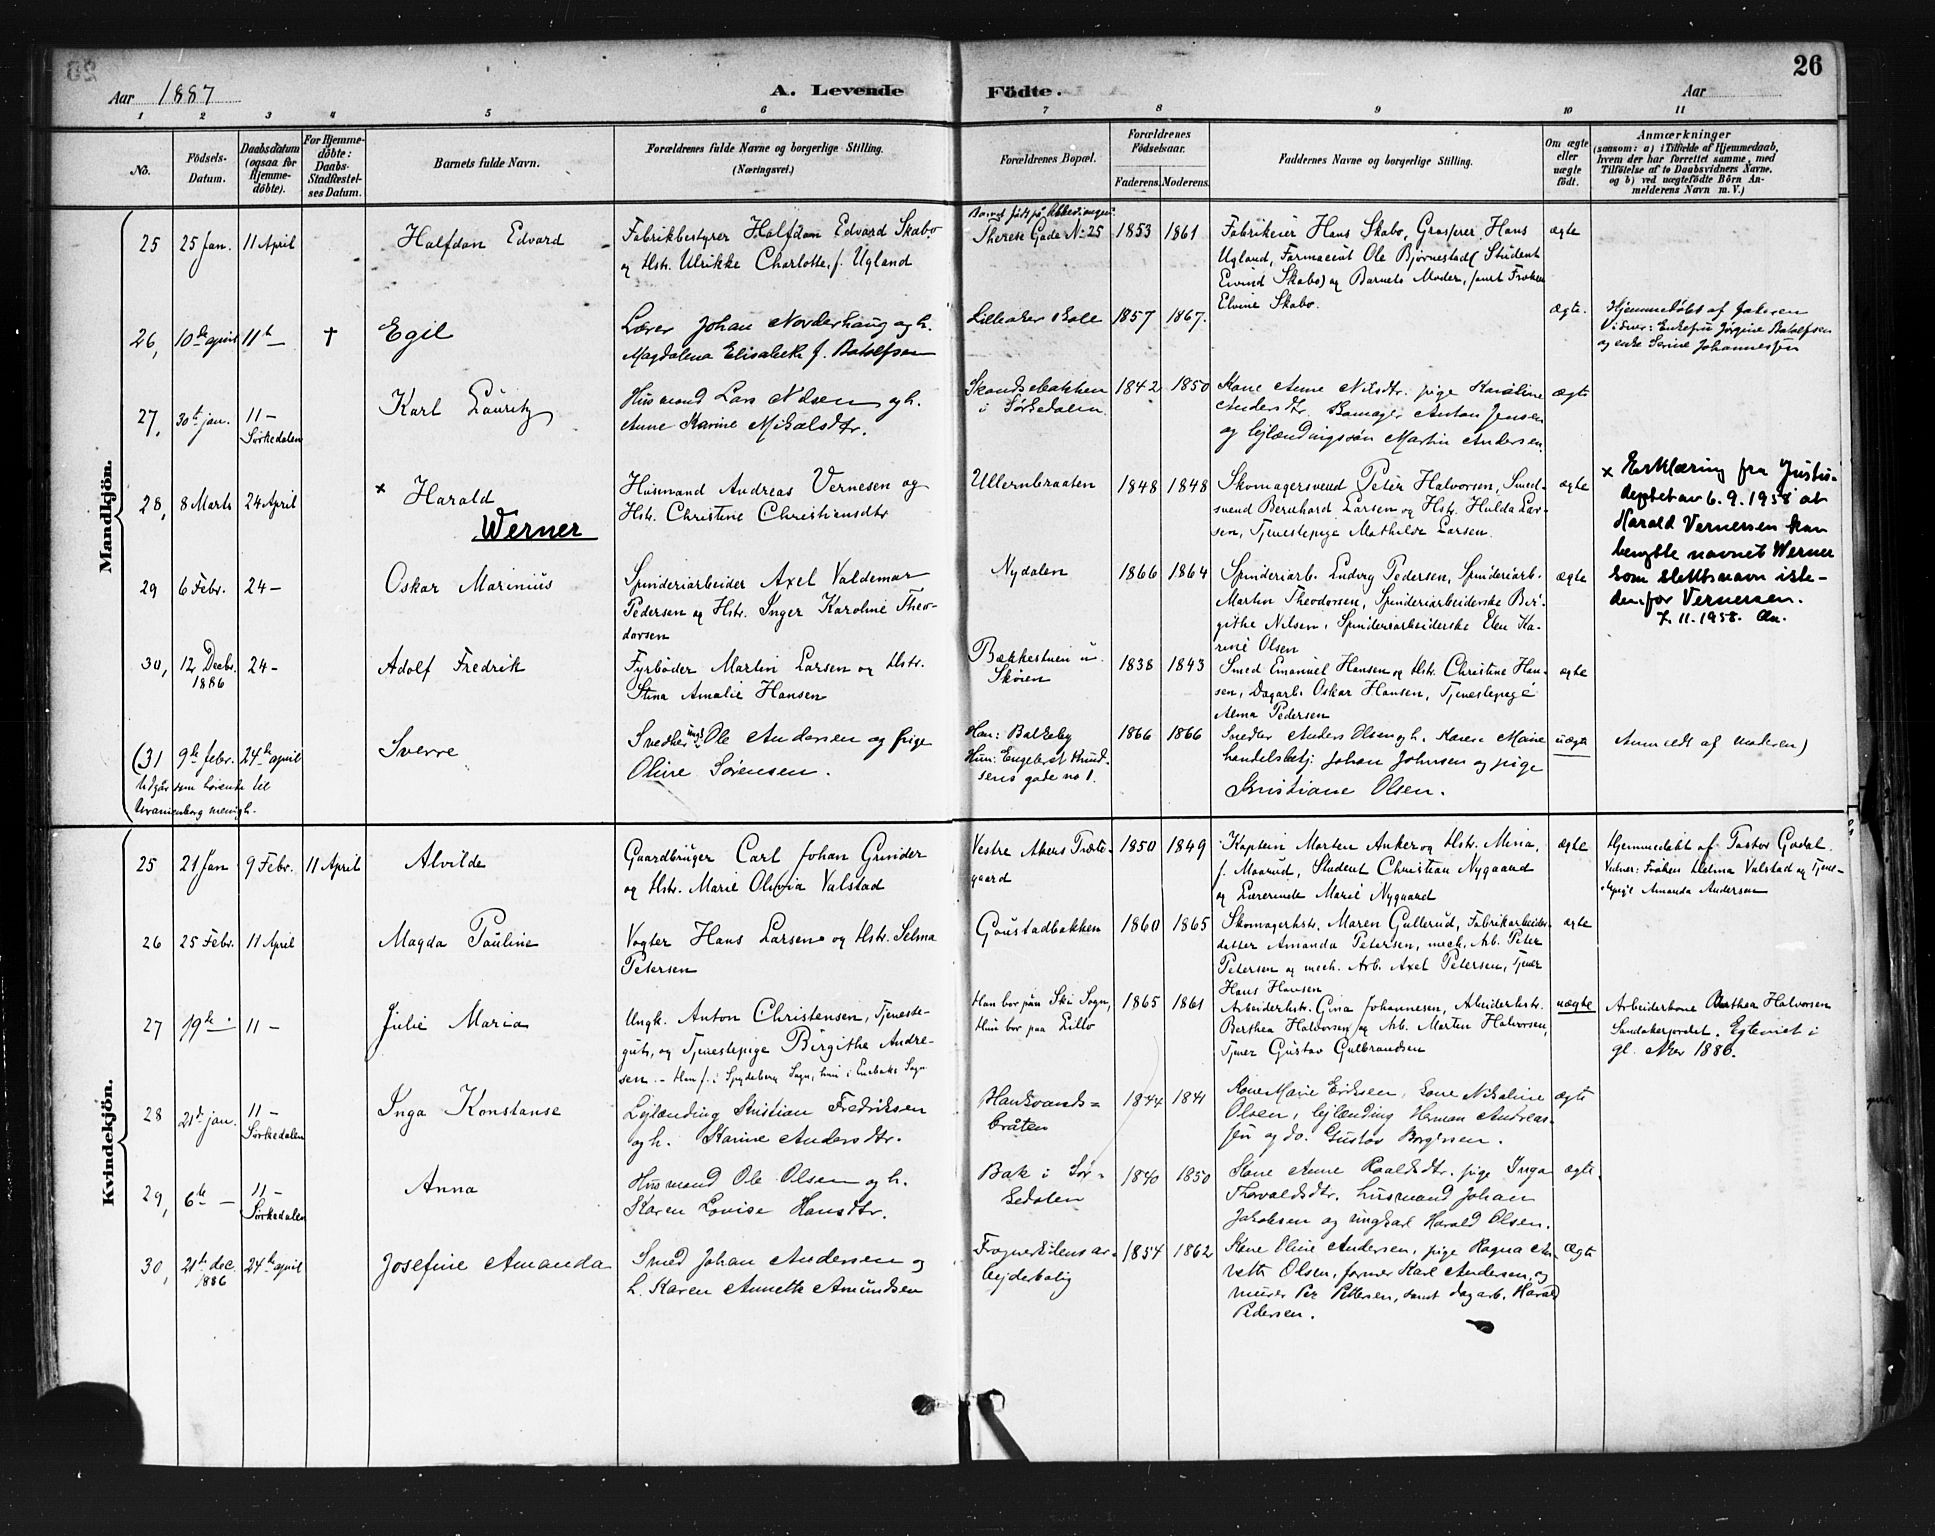 26
Aar 1887
A. Levende Födte.
Aar
1 2 3 4 5 6 7 8 9 10 11
No.
Födsels-
Datum.
Daabsdatum
(ogsaa for
Hjemme-
döbte).
For Hjemme-
döbte:
Daabs-
Stadfæstel-
ses Datum.
Barnets fulde Navn.
Forældrenes fulde Navne og borgerlige Stilling.
(Næringsvei.)
Forældrenes Bopæl.
Forældrenes
Födselsaar.
Faderens. Moderens.
Faddernes Navne og borgerlige Stilling.
Om ægte
eller
uægte
födt.
Anmærkninger
(saasom: a) i Tilfælde af Hjemmedaab,
hvem der har forrettet samme, med
Tilföielse af to Daabsvidners Navne,
og b) ved uægtefödte Börn An-
melderens Navn m. V.)
Mandkjön.
25 25 Jan. 11 April
Halfdan Edvard
Fabrikbestyrer Halfdan Edvard Skabo
og Hstr. Ulrikke Charlotte, f. Ugland
Barnet født på
Therese Gade No 25
1853 1861
Fabrikeier Hans Skabo, Grosserer Hans
Ugland, Farmaceut Ole Bjørnestad (Student
Eivind Skabo) og Barnets Moder, samt Frøken
Elvine Skabo.
ægte
26, 10de april 11te — †
Egil
Lærer Johan Norderhaug og h.
Magdalena Elisabeth f. Batolfsen
Lilleaker skole
1857 1867.
ægte.
Hjemmedøbt af Faderen
Vidner: Enkefru Jørgine Batolfsen
og enke Serine Johannessen
27, 30te jan. 11 —
Sørkedalen
Karl Lauritz
Husmand Lars Nilsen og h.
Anne Karine Mikalsdtr.
Skandsebakken
i Sørkedalen
1842 1850
Kone Anne Nilsdtr. pige Karoline
Andersdtr. Bamager Anton Jensen
og lejlændingssøn Martin Andersen
ægte
28, 8 Marts 24 April
x Harald
Werner
Husmand Andreas Vernesen og
Hstr. Christine Christiansdtr
Ullernbraaten
1848 1848
Skomagersvend Peter Halvorsen, Smed-
svend Bernhard Larsen og Hstr. Hulda Lar-
sen, Tjenestepige Mathilde Larsen.
ægte
x Erklæring fra Justis-
deptet av 6.9.1958 at
Harald Vernersen kan
benytte navnet Werner
som slektsnavn iste-
denfor Vernersen.
7.11.1958.
29 6 Febr. 24 —
Oskar Marinius
Spinderiarbeider Axel Valdemar
Pedersen og Hstr. Inger Karoline Theo-
dorsen
Nydalen
1866 1864
Spinderiarb. Ludvig Pedersen, Spinderiarb.
Martin Theodorsen, Spinderiarbeiderske Bir-
githe Nilsen, Spinderiarbeiderske Elen Ka-
rine Olsen
ægte
30, 12 Decbr. 24 —
1886
Adolf Fredrik
Fyrbøder Martin Larsen og Hstr.
Stina Amalie Hansen
Bækkestuen u.
Skøien
1838 1843
Smed Emanuel Hansen og Hstr. Christine Han-
sen, Dagarb. Oskar Hansen, Tjenestepige
Alma Pedersen
ægte
(31 9de febr. 24de april
Udgår som hørende til
Uranienborg menigh.
Sverre
Snedker ungk. Ole Andersen og pige
Oline Sørensen.
Han: Balkeby
Hun: Engebret Knud-
sens gade no 1.
1866 1866
Snedker Anders Olsen og h. Karen Marie
handelsbetj. Johan Johnsen og pige
Kristiane Olsen.
uægte
Anmeldt af moderen)
Kvindekjön.
25 21 Jan 9 Febr. 11 April
Alvilde
Gaardbruger Carl Johan Grinder
og Hstr. Marie Olivia Valstad
Vestre Akers Præste-
gaard
1850 1849
Kaptein Morten Anker og Hstr. Mina,
f. Maarud, Student Christian Nygaard
og Lærerinde Marie Nygaard
ægte
Hjemmedøbt af Pastor Gjødal.
Vidner: Frøken Helma Valstad og Tjene-
stepige Amanda Andersen
26 25 Febr. 11 April
Magda Pauline
Vogter Hans Larsen og Hstr. Selma
Petersen
Gaustadbakken
1860 1865
Skomagerhstr. Maren Gullerud, Fabrikarbeider-
datter Amanda Petersen, mech. Arb. Peter
Petersen og mech. Arb. Axel Petersen, Tjener
Hans Hansen
ægte
27 19de — 11 —
Julie Maria
Ungk. Anton Christensen, Tjeneste-
gut, og Tjenestepige Birgithe Andre-
sen. — Han f. i Spydeberg Sogn, hun i Enebaks Sogn
Han bor paa Ski Sogn,
Hun bor paa Lillo
1865 1861
Arbeiderhstr. Gina Johannesen, Arbeiderhstr.
Berthea Halvorsen og Arb. Morten Halvorsen,
Tjener Gustav Gulbrandsen
uægte
Arbeiderkone Berthea Halvorsen
Sandakerjordet. Egteviet i
gl. Aker 1886.
28 21de jan. 11 —
Sørkedalen
Inga Konstanse
Lejlænding Kristian Fredriksen
og h. Karine Andersdtr.
Hankvands-
bråten
1844 1841
Kone Marie Eriksen, kone Nikoline
Olsen, lejlænding Herman Andreas-
sen og do. Gustav Borgersen.
ægte
29, 6te — 11 —
Sørkedalen
Anna
Husmand Ole Olsen og h.
Karen Lovise Hansdtr.
Bak i Sør-
kedalen
1840 1850
Kone Anne Roaldsdtr. pige Inga
Thorvaldsdtr. husmand Johan
Jakobsen og ungkarl Harald Olsen.
ægte.
30, 21de dec. 24de april
1886
Josefine Amanda
Smed Johan Andersen og
h. Karen Annette Amundsen
Frognerkilens ar-
bejderbolig
1854 1862
Kone Oline Andersen, pige Ragna An-
nette Olsen, former Karl Andersen, og
murer Per Pettersen, samt dagarb. Harald
Pedersen.
Ægte